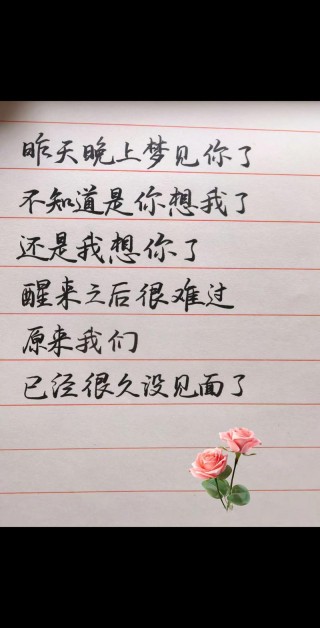 昨天晚上梦见你了
不知道是你想我了
还是我想你了
醒来之后很难过
原来我们
已经很久没见面了